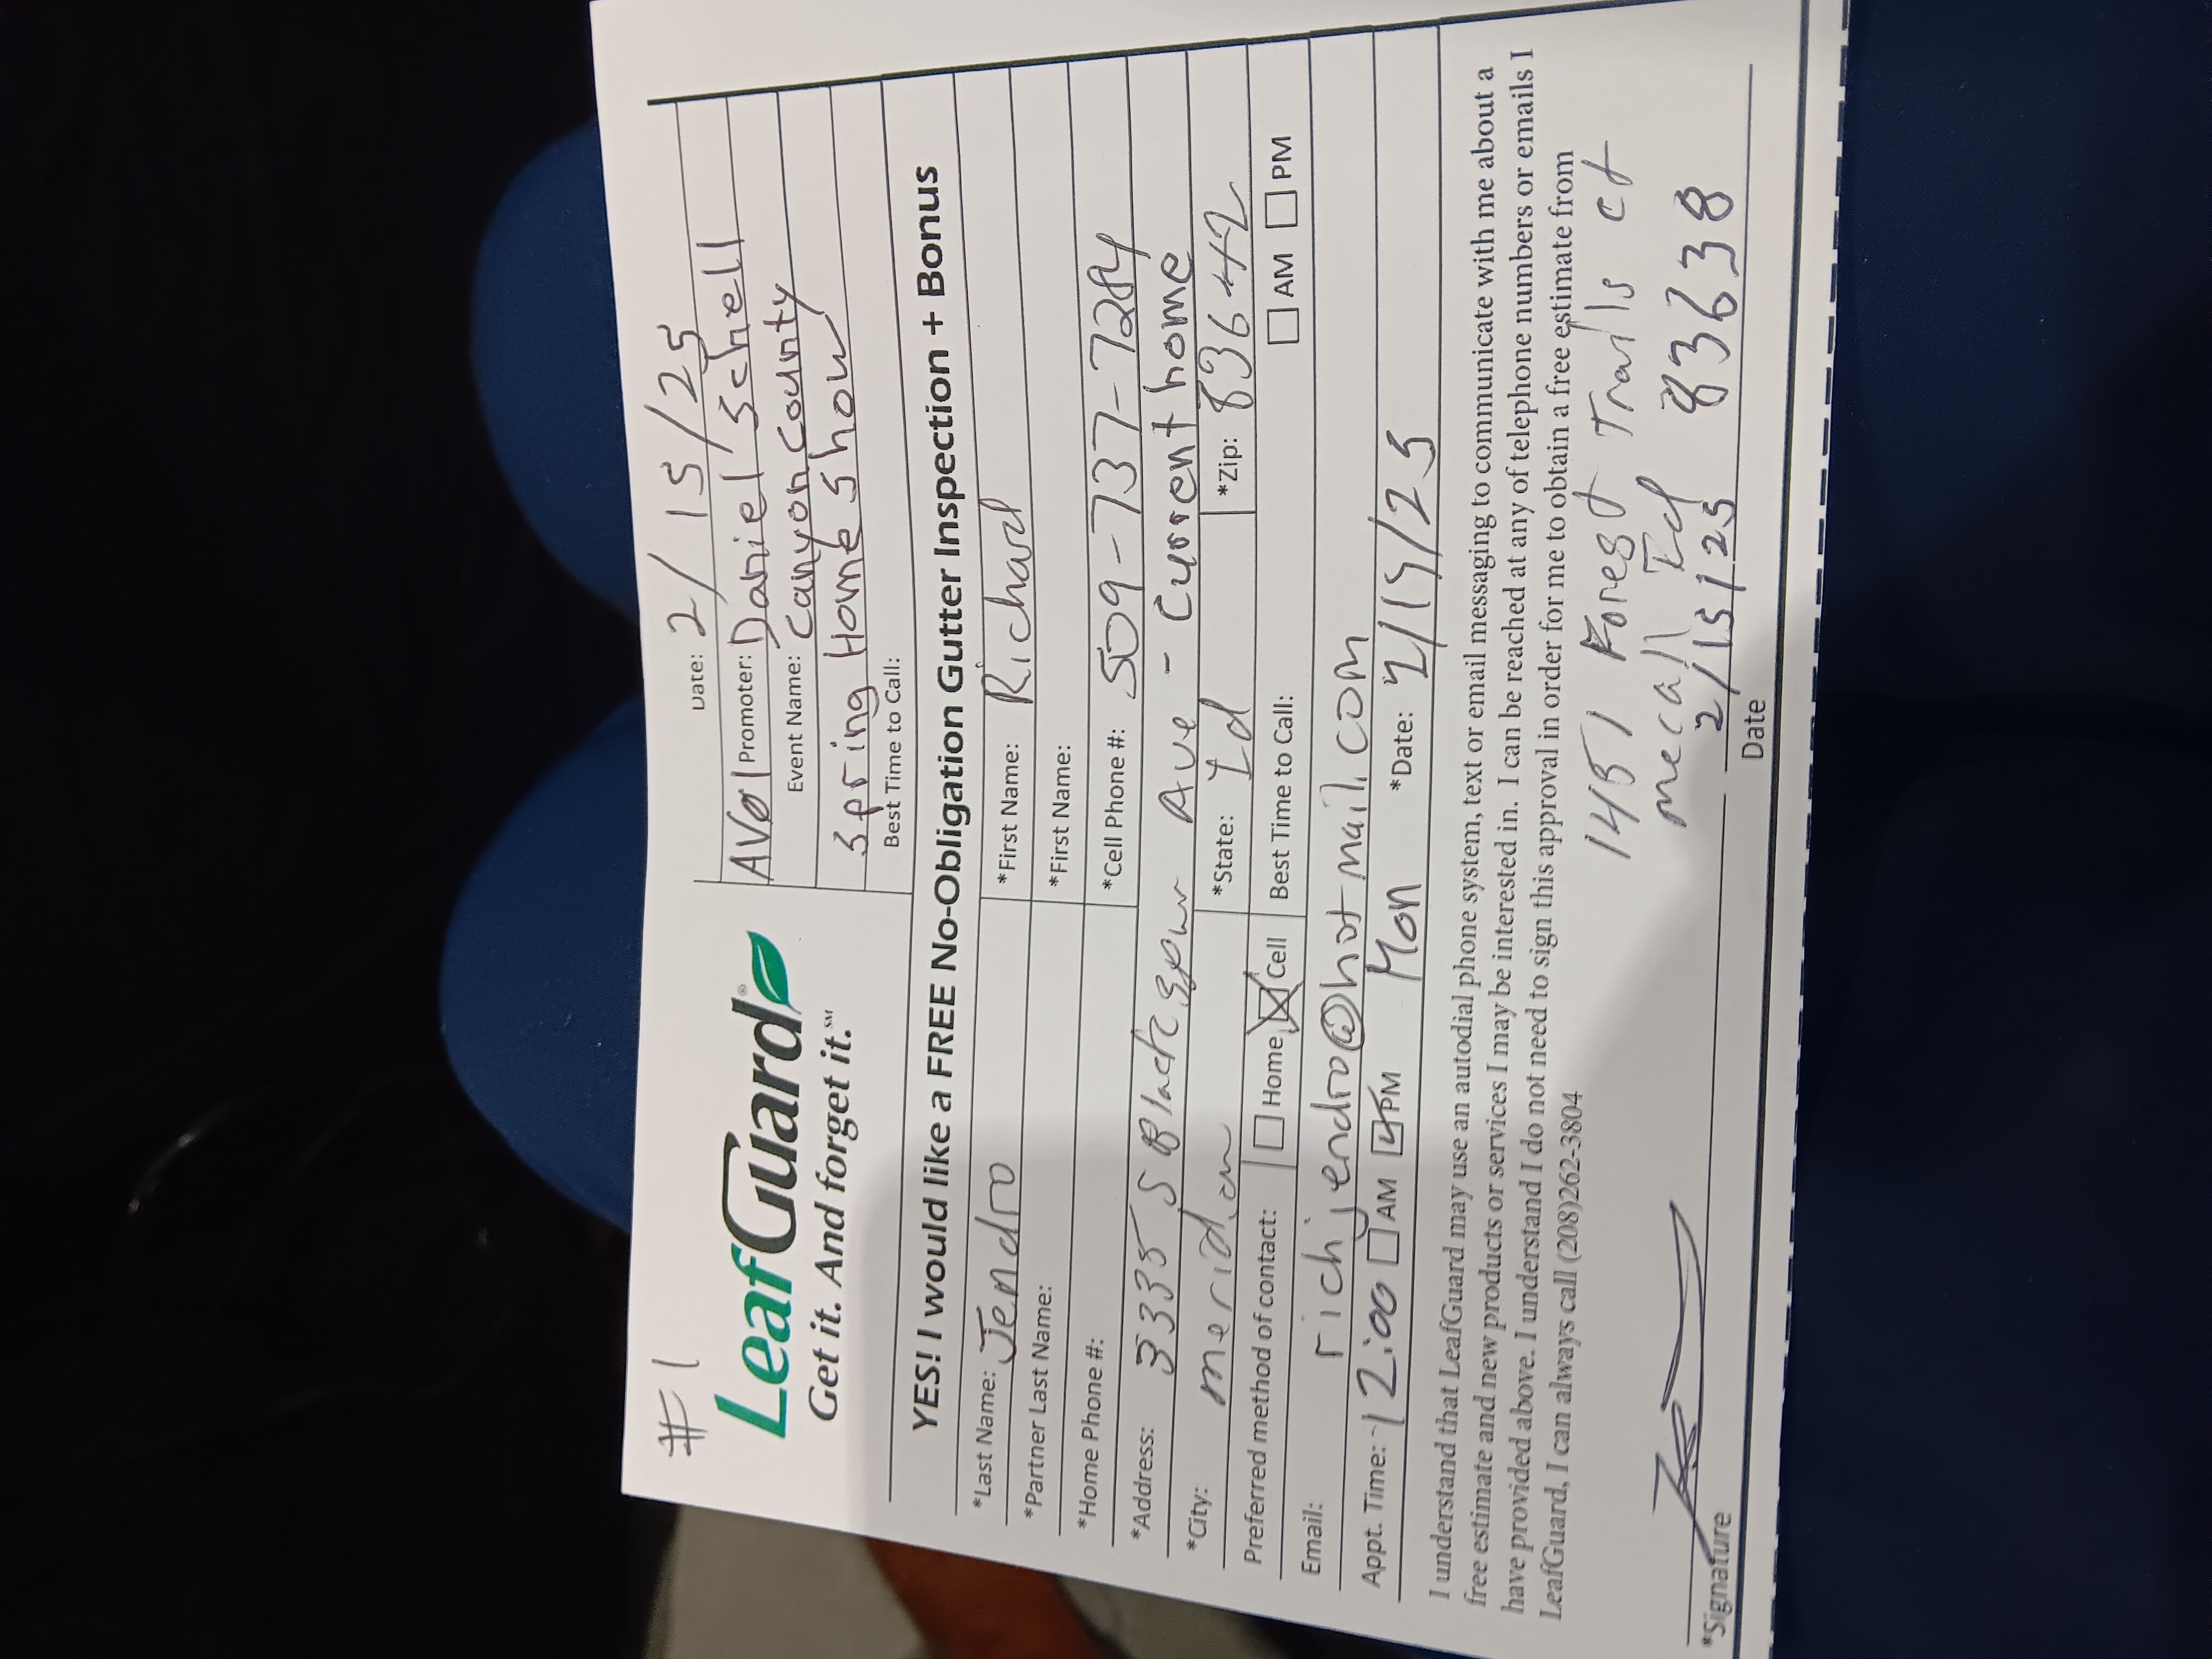 #1
Date: 2/15/25
LeafGuard®
Get it. And forget it.℠
AVØ1 Promoter: Daniel Schell
Event Name: Canyon County
Spring Home Show
Best Time to Call:
YES! I would like a FREE No-Obligation Gutter Inspection + Bonus
*Last Name: Jendro *First Name: Richard
*Partner Last Name: *First Name:
*Home Phone #: *Cell Phone #: 509-737-7284
*Address: 3335 S Blackspur Ave - Current home
*City: meridian *State: Id *Zip: 83642
Preferred method of contact: Home Cell Best Time to Call: AM PM
Email: richjendro@hotmail.com
Appt. Time: 12:00 AM PM Mon *Date:
I understand that LeafGuard may use an autodial phone system, text or email messaging to communicate with me about a
free estimate and new products or services I may be interested in. I can be reached at any of telephone numbers or emails I
have provided above. I understand I do not need to sign this approval in order for me to obtain a free estimate from
LeafGuard, I can always call (208)262-3804
1451 Forest Trails ct
mccall Id 83638
2/15/25
*Signature Date